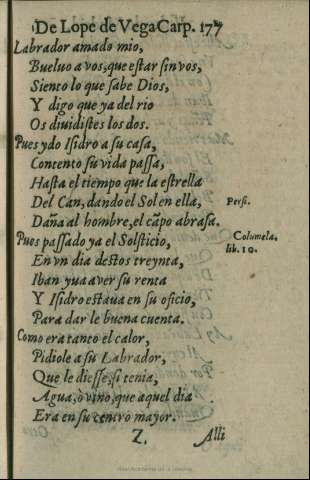 De Lope de Vega Carp. 177
Labrador amado mio,
Bueluo a vos, que estar sin vos,
Siento lo que sabe Dios,
Y digo que ya del rio
Os diuidistes los dos.
Pues ydo Isidro a su casa,
Contento su vida passa,
Hasta el tiempo que la estrella
Del Can, dando el Sol en ella, Persi.
Daña al hombre, el cãpo abrasa.
Pues passado ya el Solsticio, Columela.
lib. 10.
En vn dia destos treynta,
Iban yua a ver su renta
Y Isidro estaua en su oficio,
Para dar le buena cuenta.
Como era tanto el calor,
Pidiole a su Labrador,
Que le diesse, si tenia,
Agua, ò vino, que aquel dia
Era en su centro mayor.
Z. Alli